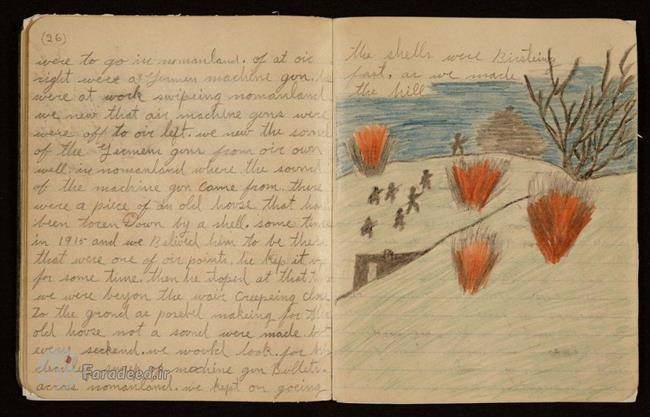 (26)
were to go in nomanland. of at oir
right were a Germen machine gon.
were at work swipeing nomanland
we new that oir machine gons were
were off to oir left. we new the sound
of the Germens gons from oir own
well in nomanland where the sound
of the machine gon came from. there
were a piece of an old house that had
been toren Down by a shell. some time
in 1915 and we Belived him to be there
that were one of oir points. he kep it up
for some time. then he stoped at that
we were beyon the wair creepeing close
to the grond as posebel makeing for the
old house not a sound were made. but
every seckend. we would look for
machine gon Bullets.
acros nomanland. we kept on goeing
the shells were Birsteing
fast. as we made
the hill
Faradeed.ir